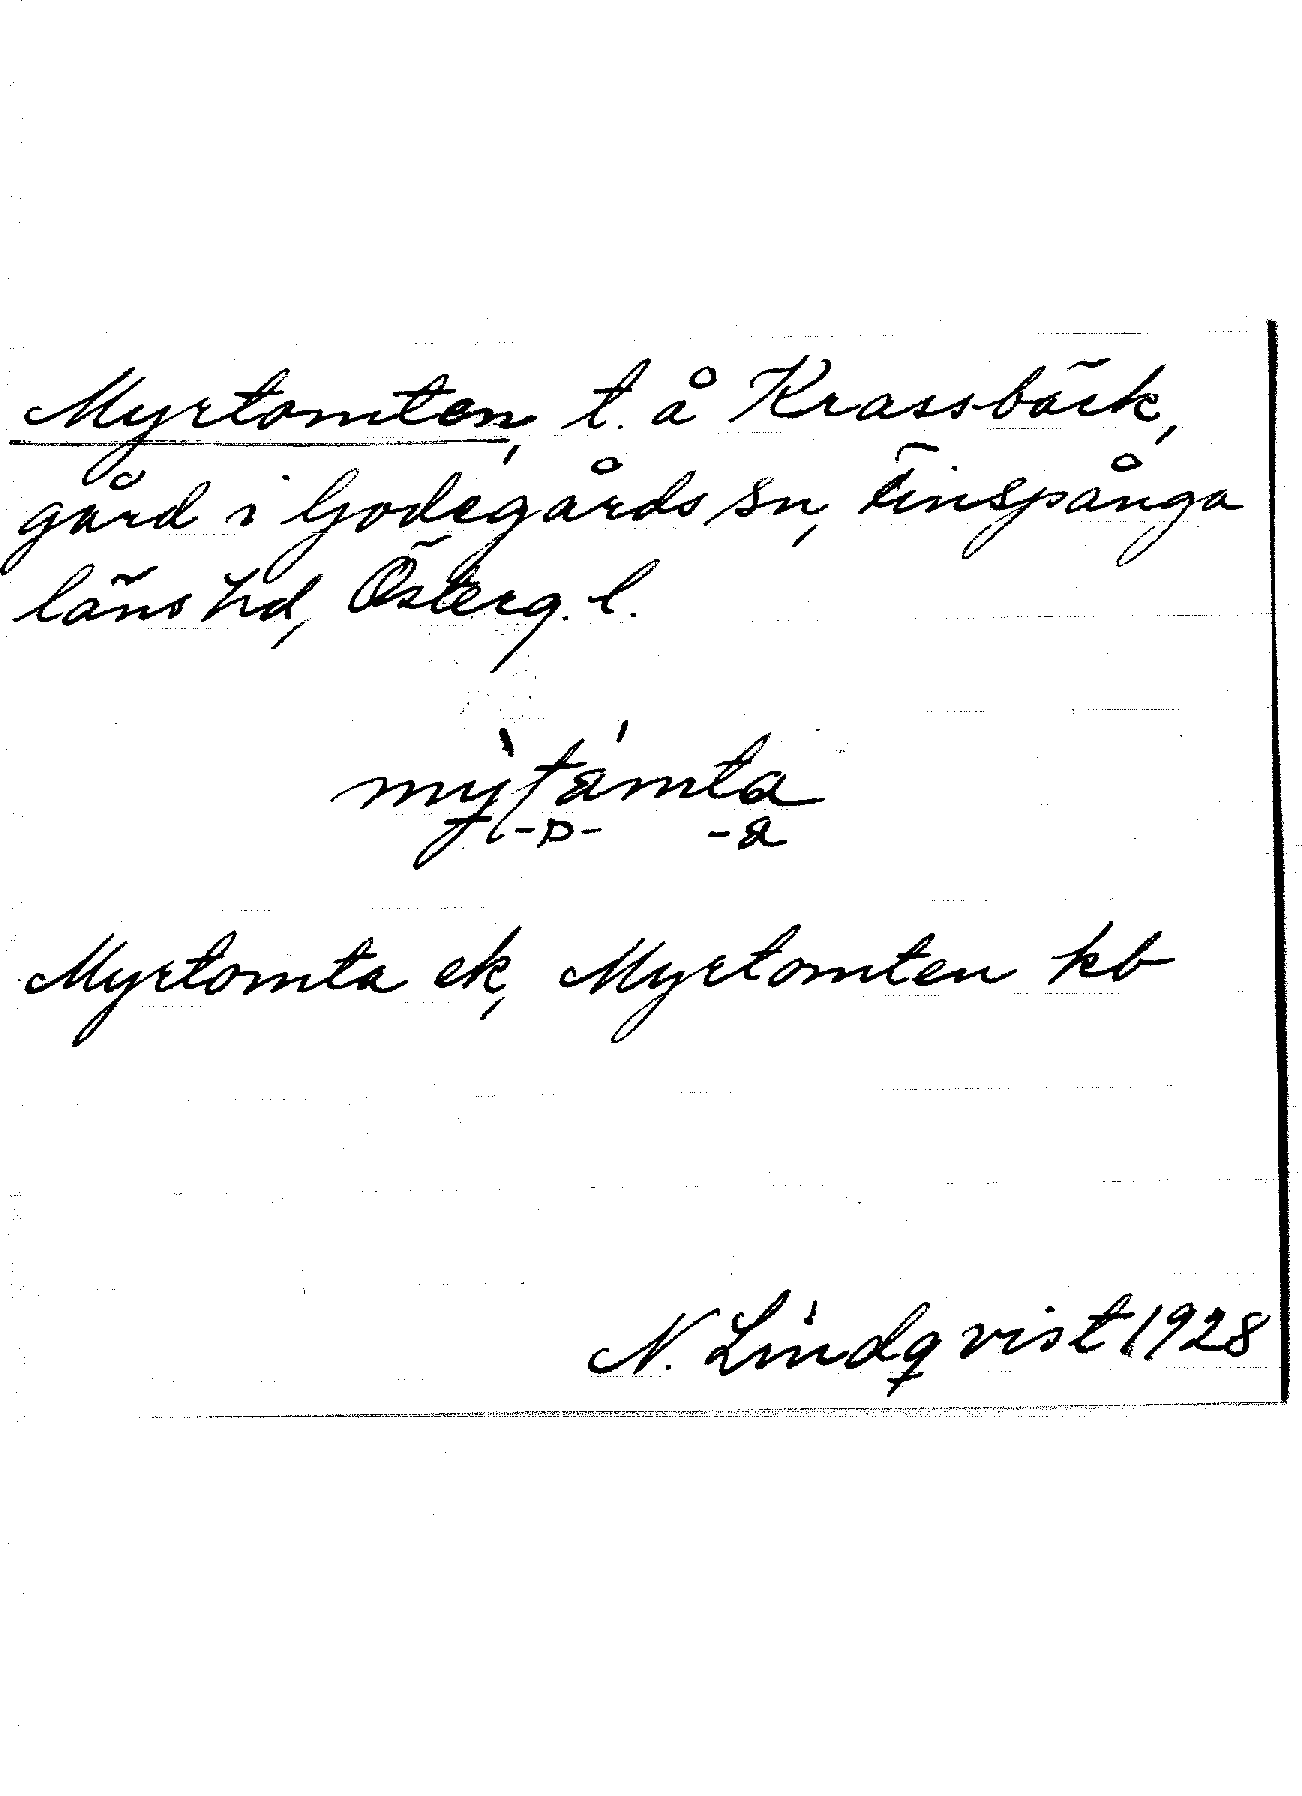 Myrtomten, t. å Krassbäck,
gård i Godegårds sn, Finspånga
läns hd, Österg. l.
Myrtomta ek, Myrtomten kb
N. Lindqvist 1928